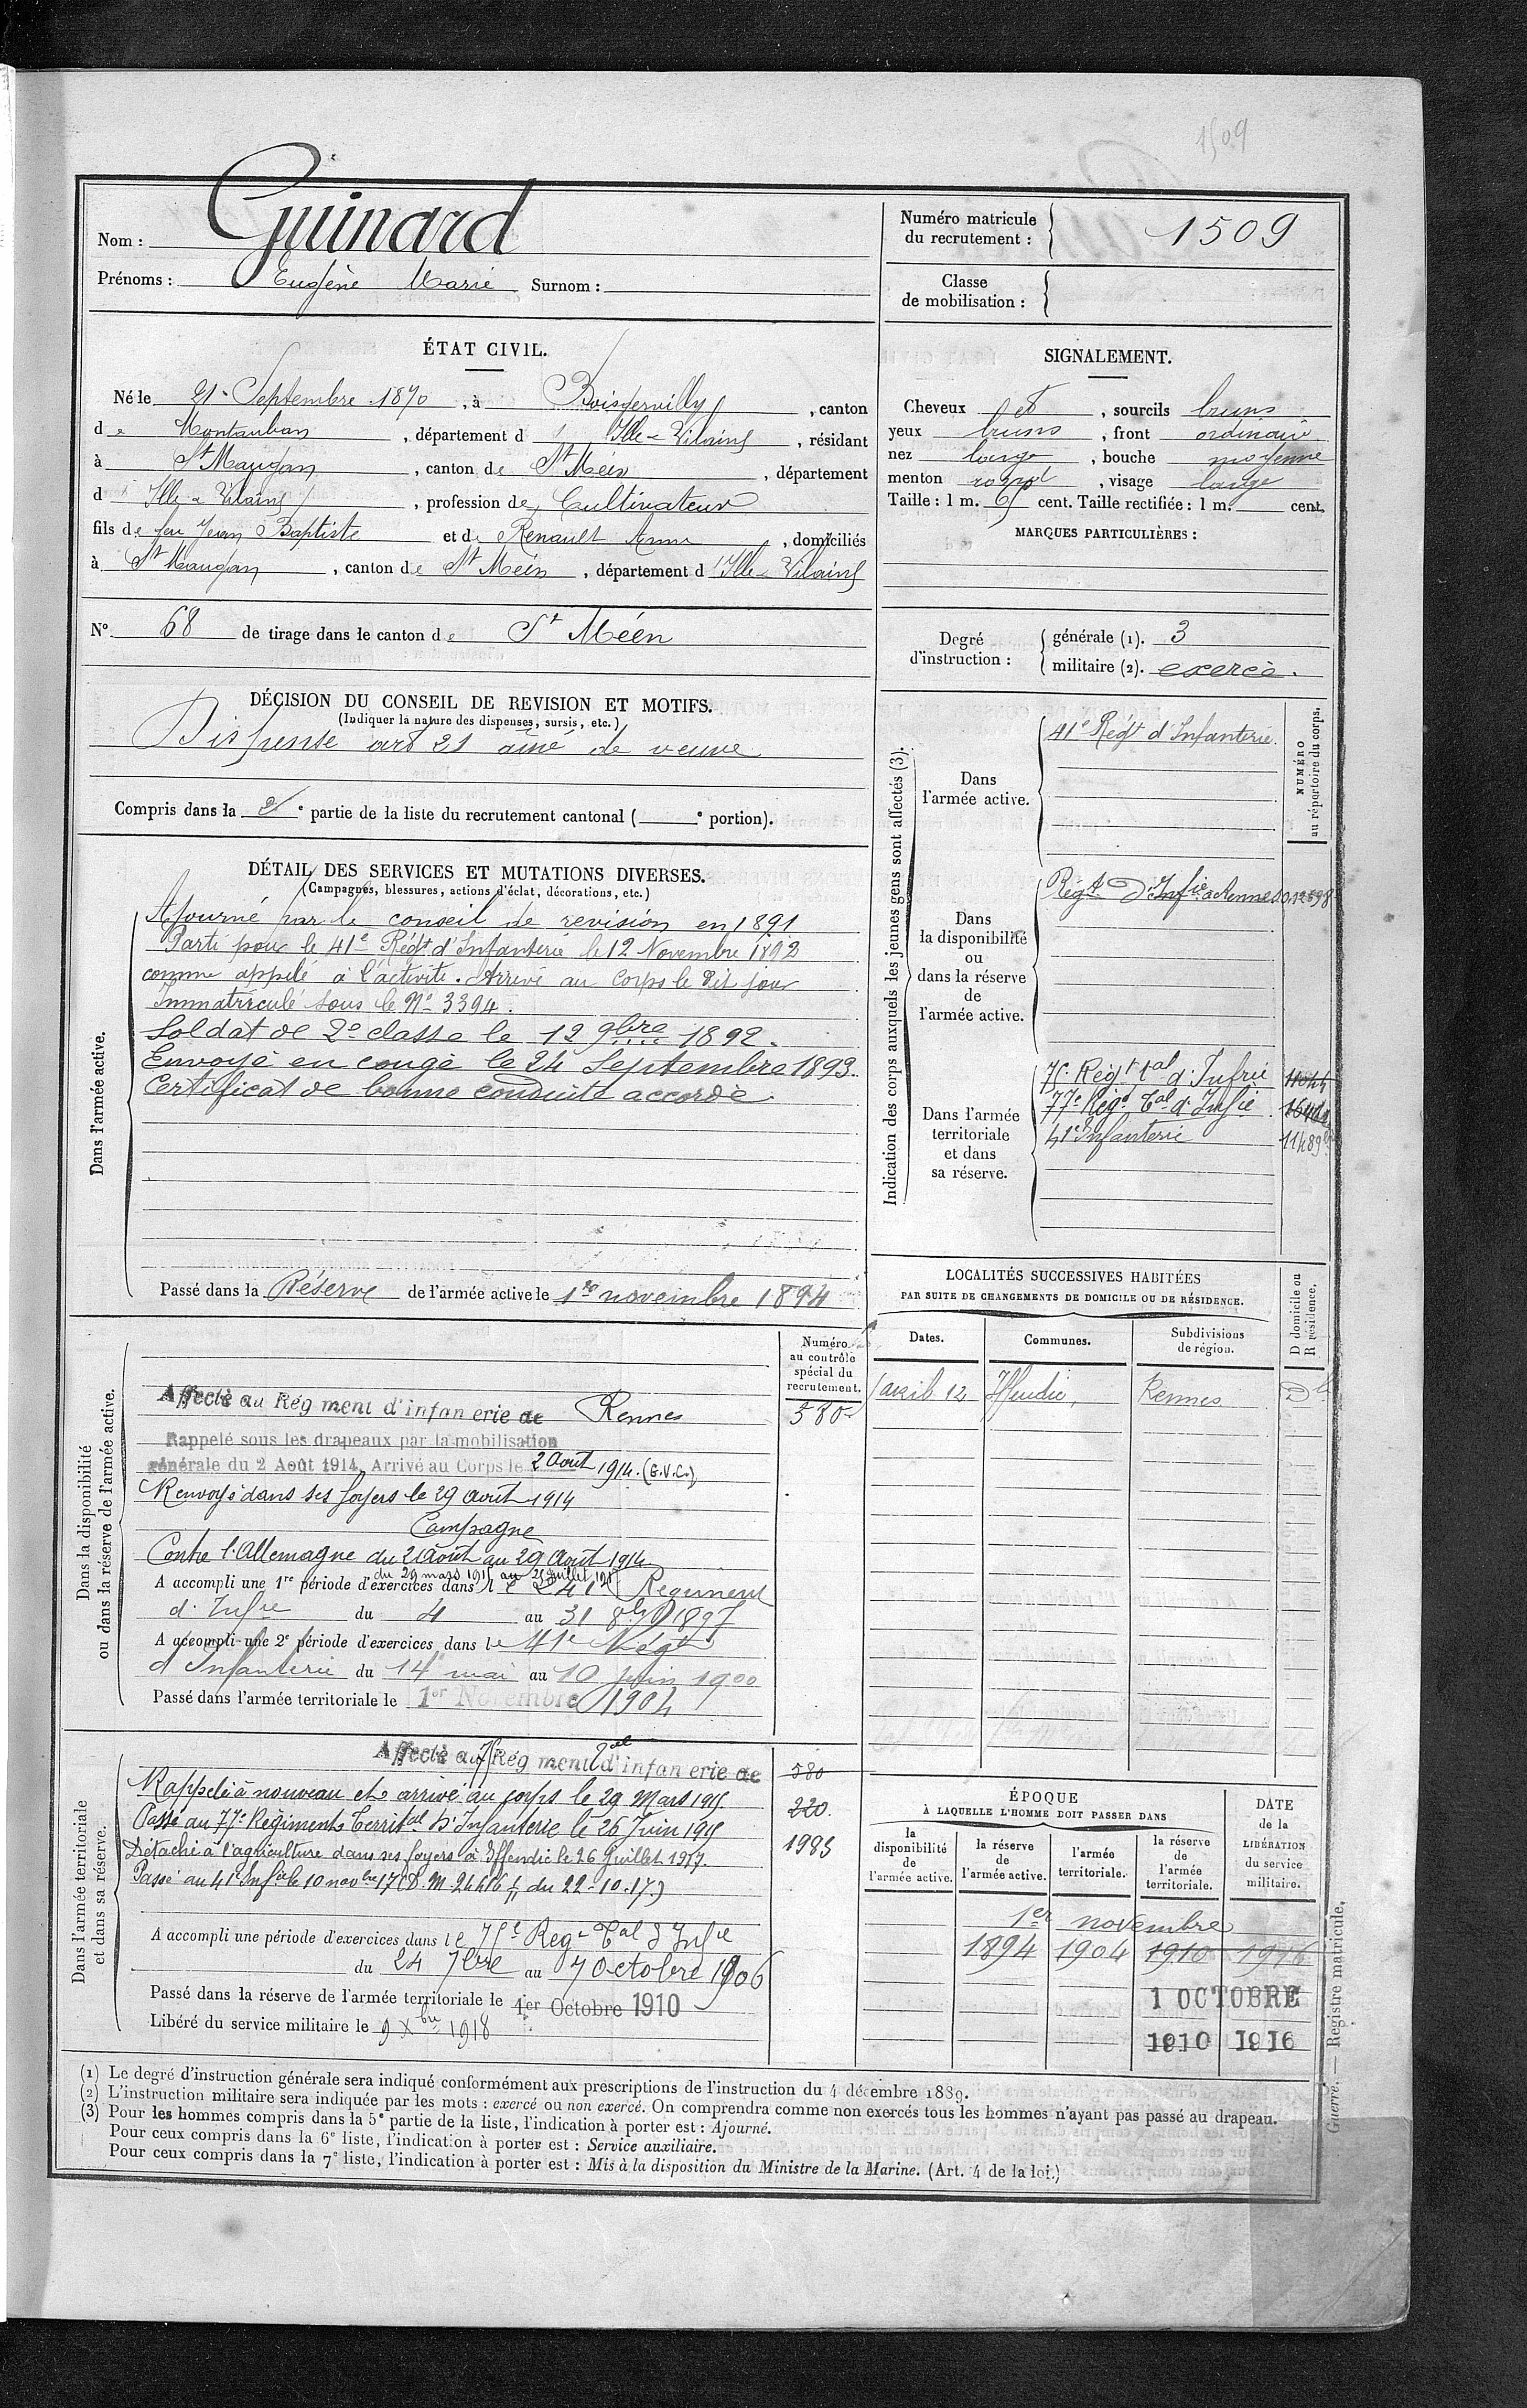 1509
Nom : Guinard
Prénoms : Eugène Marie Surnom :
Numéro matricule du recrutement : 1509
Classe de mobilisation :
ÉTAT CIVIL.
Né le 21 Septembre 1870, à Boisgervilly, canton
de Montauban, département d'Ille-&-Vilaine, résidant
à St Maugan, canton de St Méen, département
d'Ille & Vilaine, profession de Cultivateur
fils de feu Jean Baptiste et de Renault Anne, domiciliés
à St Maugan, canton de St Méen, département d'Ille & Vilaine
SIGNALEMENT.
Cheveux et, sourcils bruns
yeux bruns, front ordinaire
nez large, bouche moyenne
menton rond, visage large
Taille : 1 m. 65 cent. Taille rectifiée : 1 m. cent.
MARQUES PARTICULIÈRES :
N° 68 de tirage dans le canton de St Méen
Degré d'instruction :
générale (1). 3
militaire (2). exercé.
DÉCISION DU CONSEIL DE REVISION ET MOTIFS.
(Indiquer la nature des dispenses, sursis, etc.)
Dispensé art 21 aîné de veuve
Compris dans la 2e partie de la liste du recrutement cantonal (e portion).
DÉTAIL DES SERVICES ET MUTATIONS DIVERSES.
(Campagnes, blessures, actions d'éclat, décorations, etc.)
Dans l'armée active.
Ajourné par le conseil de revision en 1891
Parti pour le 41e Régt d'Infanterie le 12 Novembre 1892
comme appelé à l'activité. Arrivé au Corps le dit jour
Immatriculé sous le No 3394.
Soldat de 2e classe le 12 9bre 1892.
Envoyé en congé le 24 Septembre 1893.
Certificat de bonne conduite accordé.
Passé dans la Réserve de l'armée active le 1er novembre 1894
Indication des corps auxquels les jeunes gens sont affectés (3).
NUMÉRO au répertoire du corps.
Dans l'armée active.
41e Régt d'Infanterie.
Dans la disponibilité ou dans la réserve de l'armée active.
Régt d'Infie à Rennes
Dans l'armée territoriale et dans sa réserve.
75e Régt tal d'Infrie
77e Régt Tal d'Infie
41e Infanterie
LOCALITÉS SUCCESSIVES HABITÉES
PAR SUITE DE CHANGEMENTS DE DOMICILE OU DE RÉSIDENCE.
Dates. Communes. Subdivisions de région. D domicile ou R résidence.
avril 12 Iffendic, Rennes D
Numéro au contrôle spécial du recrutement.
Dans la disponibilité ou dans la réserve de l'armée active.
Affecté au Régiment d'infanterie de Rennes 580
Rappelé sous les drapeaux par la mobilisation
générale du 2 Août 1914. Arrivé au Corps le 2 Août 1914. (G.V.C.)
Renvoyé dans ses foyers le 29 août 1914
Campagne
Contre l'Allemagne du 2 Août au 29 Août 1914
du 29 mars 1915 au 26 Juillet 1917
A accompli une 1re période d'exercices dans le 241e Régiment
d'Infie du 4 au 31 8bre 1897
A accompli une 2e période d'exercices dans le 41e Régt
d'Infanterie du 14 mai au 10 Juin 1900
Passé dans l'armée territoriale le 1er Novembre 1904
Dans l'armée territoriale et dans sa réserve.
Affecté au 75 Régiment Tal d'infanterie de 580
Rappelé à nouveau et arrivé au corps le 29 Mars 1915 220.
Passé au 77e Régiment Territal d'Infanterie le 26 Juin 1915
Détaché à l'agriculture dans ses foyers à Iffendic le 26 Juillet 1917. 1983
Passé au 41e Infie le 10 novbre 17 (D. M. 24416 du 22-10-17.)
A accompli une période d'exercices dans le 75e Régt Tal d'Infie
du 24 7bre au 7 Octobre 1906
Passé dans la réserve de l'armée territoriale le 1er Octobre 1910
Libéré du service militaire le 9 Xbre 1918
ÉPOQUE
À LAQUELLE L'HOMME DOIT PASSER DANS
la disponibilité de l'armée active. la réserve de l'armée active. l'armée territoriale. la réserve de l'armée territoriale. DATE de la LIBÉRATION du service militaire.
1er novembre
1894 1904 1910 1916
1 OCTOBRE
1910 1916
Guerre. — Registre matricule.
(1) Le degré d'instruction générale sera indiqué conformément aux prescriptions de l'instruction du 4 décembre 1889.
(2) L'instruction militaire sera indiquée par les mots : exercé ou non exercé. On comprendra comme non exercés tous les hommes n'ayant pas passé au drapeau.
(3) Pour les hommes compris dans la 5e partie de la liste, l'indication à porter est : Ajourné.
Pour ceux compris dans la 6e liste, l'indication à porter est : Service auxiliaire.
Pour ceux compris dans la 7e liste, l'indication à porter est : Mis à la disposition du Ministre de la Marine. (Art. 4 de la loi.)